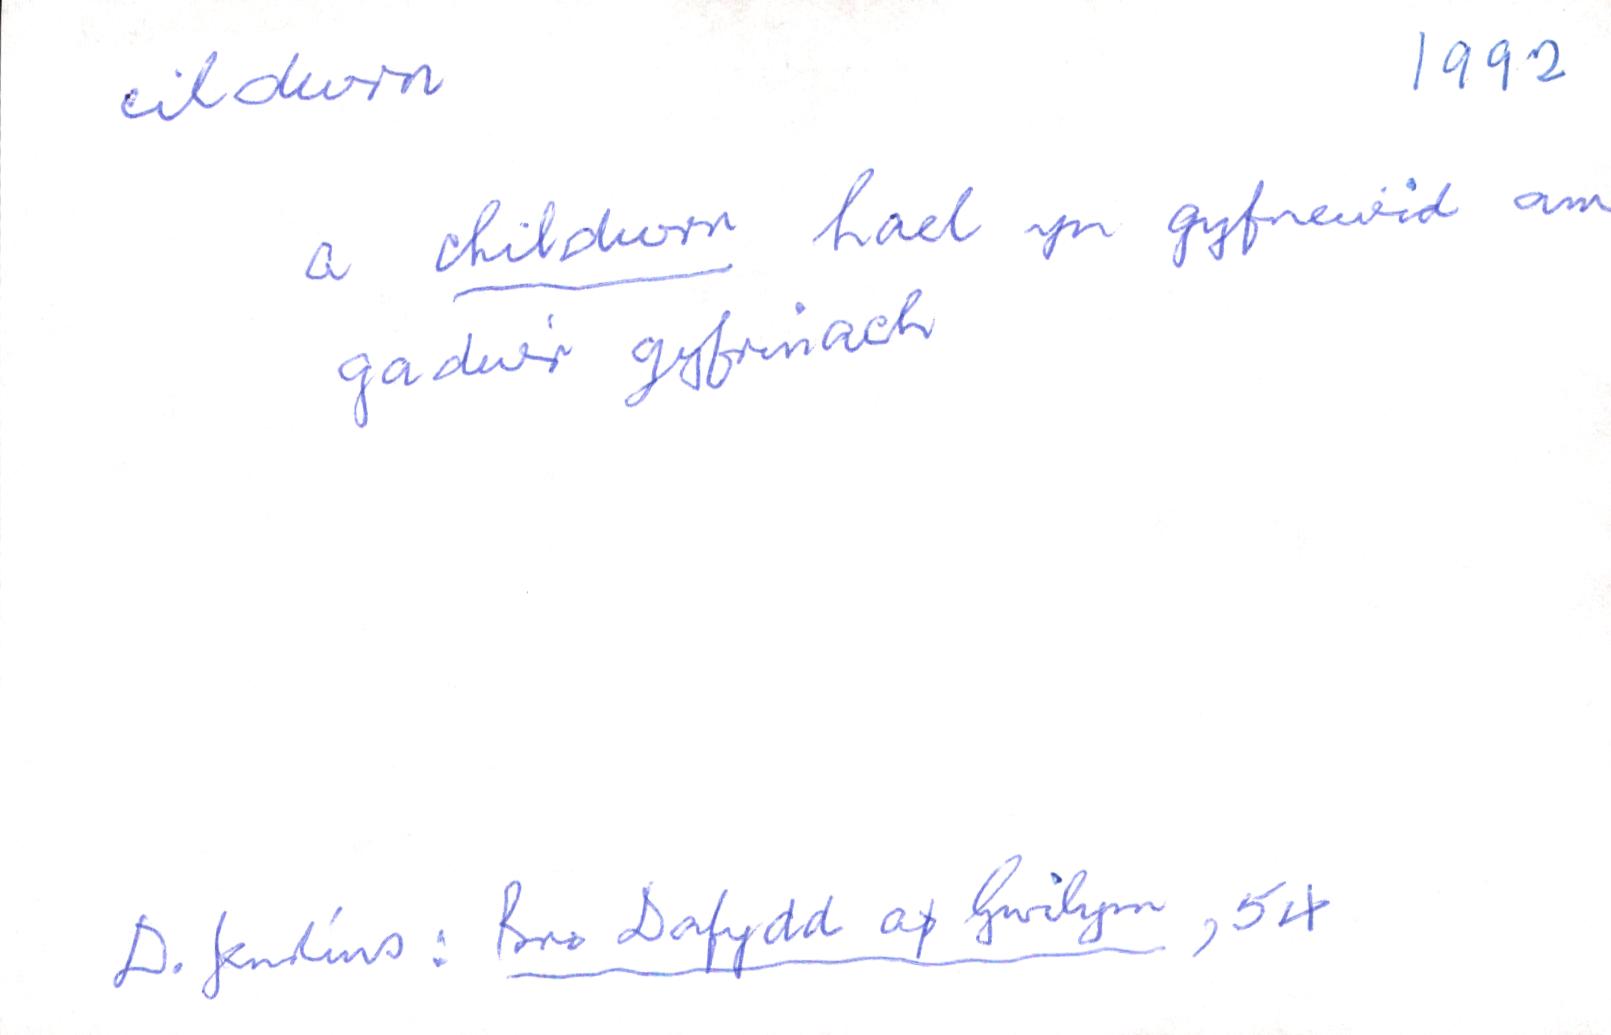 cildwrn 1992
a childwrn hael yn gyfnewid am
gadw'r gyfrinach
D. Jenkins: Bro Dafydd ap Gwilym, 54